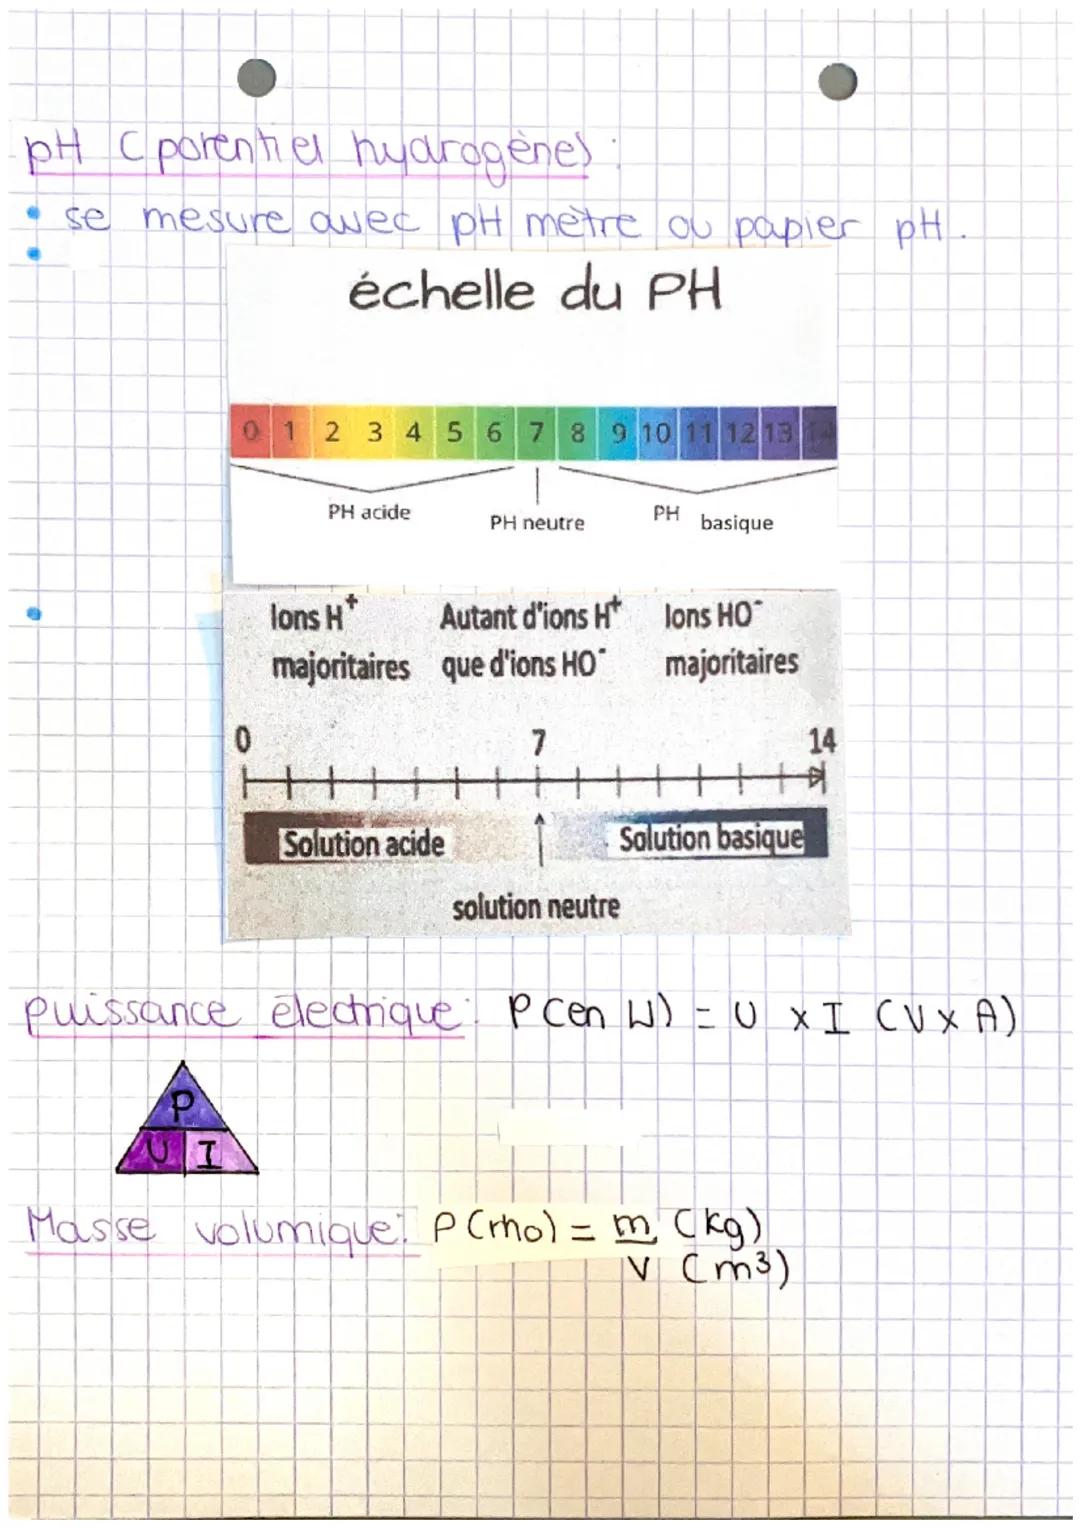 pH (potentiel hydrogène) :
se mesure avec pH mètre ou papier pH.
échelle du PH
0 1 2 3 4 5 6 7 8 9 10 11 12 13 14
PH acide PH neutre PH basique
Ions H⁺ Autant d'ions H⁺ Ions HO⁻
majoritaires que d'ions HO⁻ majoritaires
0 7 14
Solution acide Solution basique
solution neutre
puissance électrique : P (en W) = U x I (V x A)
P
U I
Masse volumique : ρ (rho) = m (kg)
V (m³)